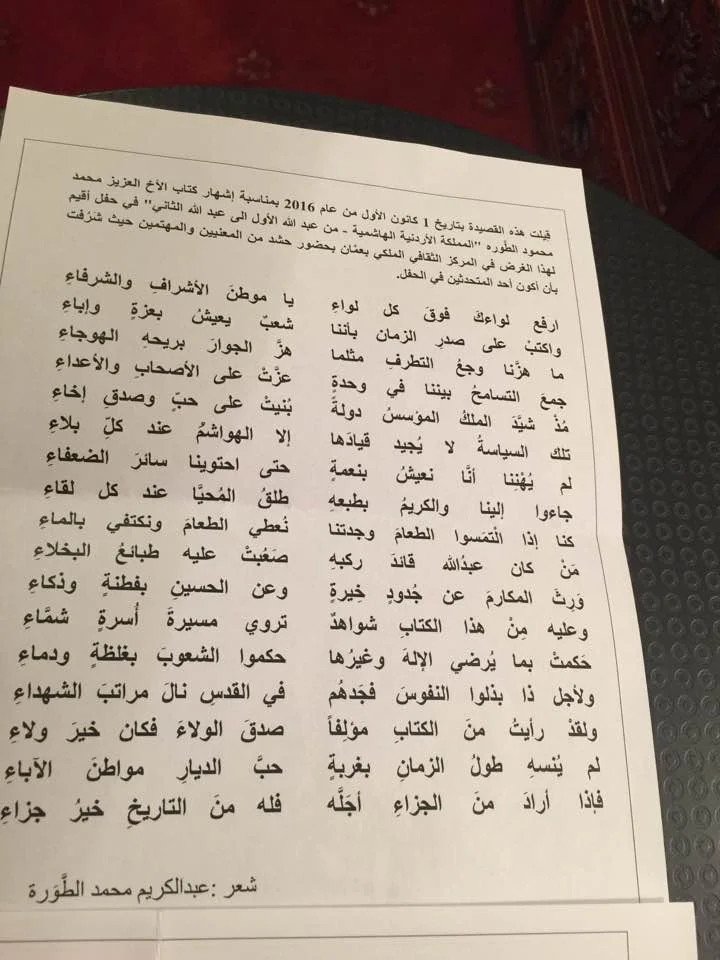 قيلت هذه القصيدة بتاريخ 1 كانون الأول من عام 2016 بمناسبة إشهار كتاب الأخ العزيز محمد
محمود الطوره "المملكة الأردنية الهاشمية - من عبد الله الأول الى عبد الله الثاني" في حفل أقيم
لهذا الغرض في المركز الثقافي الملكي بعمّان بحضور حشد من المعنيين والمهتمين حيث شَرُفت
بأن أكون أحد المتحدثين في الحفل.
ارفع لواءكَ فوقَ كل لواءِ يا موطنَ الأشرافِ والشرفاءِ
واكتبْ على صدرِ الزمان بأننا شعبٌ يعيشُ بعزةٍ وإباءِ
ما هزَّنا وجعُ التطرفِ مثلما هزَّ الجوارَ بريحهِ الهوجاءِ
جمعَ التسامحُ بيننا في وحدةٍ عزَّتْ على الأصحابِ والأعداءِ
مُذْ شيَّدَ الملكُ المؤسسُ دولةً بُنيتْ على حبٍّ وصدقِ إخاءِ
تلك السياسةُ لا يُجيد قيادَها إلا الهواشمُ عند كلِّ بلاءِ
لم يُهْنِنا أنَّا نعيشُ بنعمةٍ حتى احتوينا سائرَ الضعفاءِ
جاءوا إلينا والكريمُ بطبعهِ طلقُ المُحيَّا عند كل لقاءِ
كنا إذا الْتمَسوا الطعامَ وجدتنا نُعطي الطعامَ ونكتفي بالماءِ
مَنْ كان عبدُالله قائدَ ركبهِ صَعُبتْ عليه طبائعُ البخلاءِ
وَرِثَ المكارمَ عن جُدودٍ خِيرةٍ وعن الحسينِ بفطنةٍ وذكاءِ
وعليه مِنْ هذا الكتابِ شواهدٌ تروي مسيرةَ أُسرةٍ شمَّاءِ
حَكمتْ بما يُرضي الإلهَ وغيرُها حكموا الشعوبَ بغلظةٍ ودماءِ
ولأجل ذا بذلوا النفوسَ فجَدهُم في القدسِ نالَ مراتبَ الشهداءِ
ولقدْ رأيتُ منَ الكتابِ مؤلِفاً صدقَ الولاءَ فكان خيرَ ولاءِ
لم يُنسهِ طولُ الزمانِ بغربةٍ حبَّ الديارِ مواطنَ الآباءِ
فإذا أرادَ منَ الجزاءِ أجَلَّه فله منَ التاريخِ خيرُ جزاءِ
شعر :عبدالكريم محمد الطَّوَرة